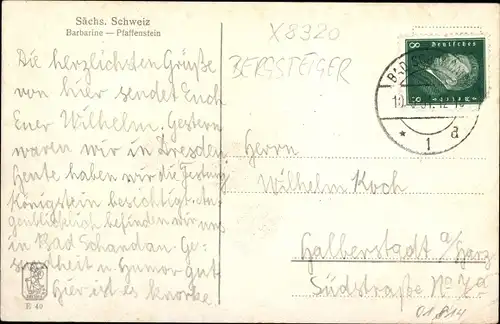 Sächs. Schweiz
Barbarine — Pfaffenstein
X8320
BERGSTEIGER
Die herzlichsten Grüße
von hier sendet Euch
Euer Wilhelm. Gestern
waren wir in Dresden.
Heute haben wir die Festung
Königstein besichtigt. Au-
genblicklich befinden wir uns
in Bad Schandau. Ge-
sundheit u. Humor gut
Hier ist es knorke
Deutsches Reich
8 8
BAD
1
a
Herrn
Wilhelm Koch
Halberstadt a/Harz
Südstraße No 7a
E 40